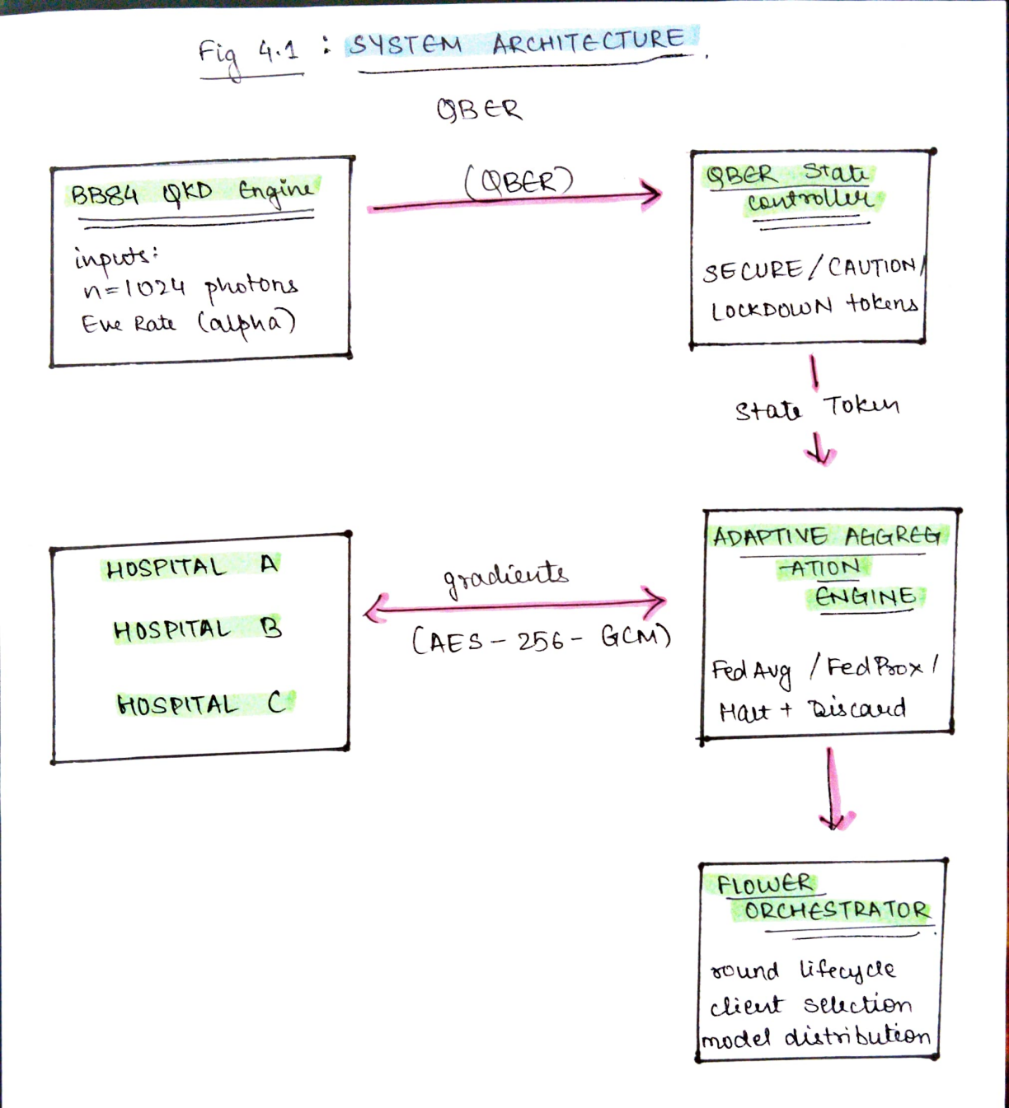 Fig 4.1 : SYSTEM ARCHITECTURE
QBER
BB84 QKD Engine
inputs:
n=1024 photons
Eve Rate (alpha)
(QBER)
QBER State
controller
SECURE/CAUTION/
LOCKDOWN tokens
State Token
HOSPITAL A
HOSPITAL B
HOSPITAL C
gradients
(AES-256-GCM)
ADAPTIVE AGGREG
-ATION
ENGINE
FedAvg / FedProx /
Halt + Discard
FLOWER
ORCHESTRATOR
round lifecycle
client selection
model distribution